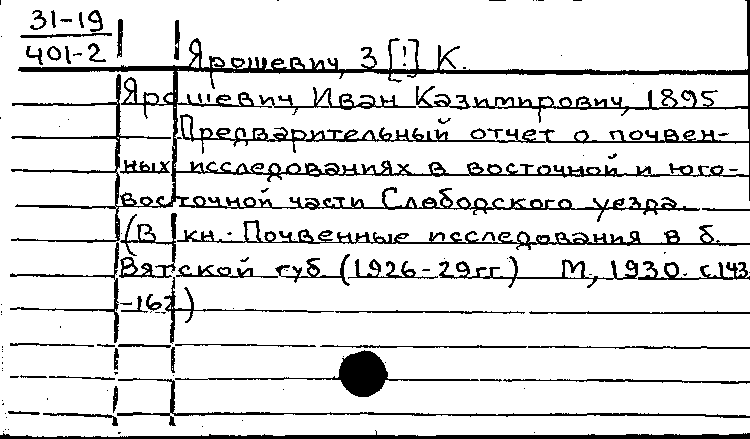 31-19
401-2
Ярошевич, З [!] К.
Ярошевич, Иван Казимирович, 1895
Предварительный отчет о почвен-
ных исследованиях в восточной и юго-
восточной части Слободского уезда.
(В кн.: Почвенные исследования в б.
Вятской губ. (1926-29гг.) М., 1930. с.143
-162)